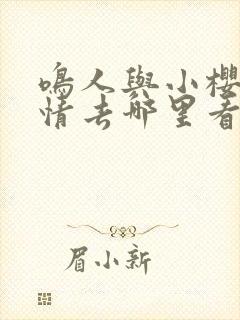 鳴人與小櫻
情去哪里看
眉小新